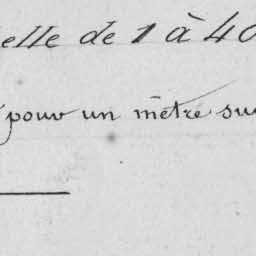 elle de 1 à 40
pour un mètre su